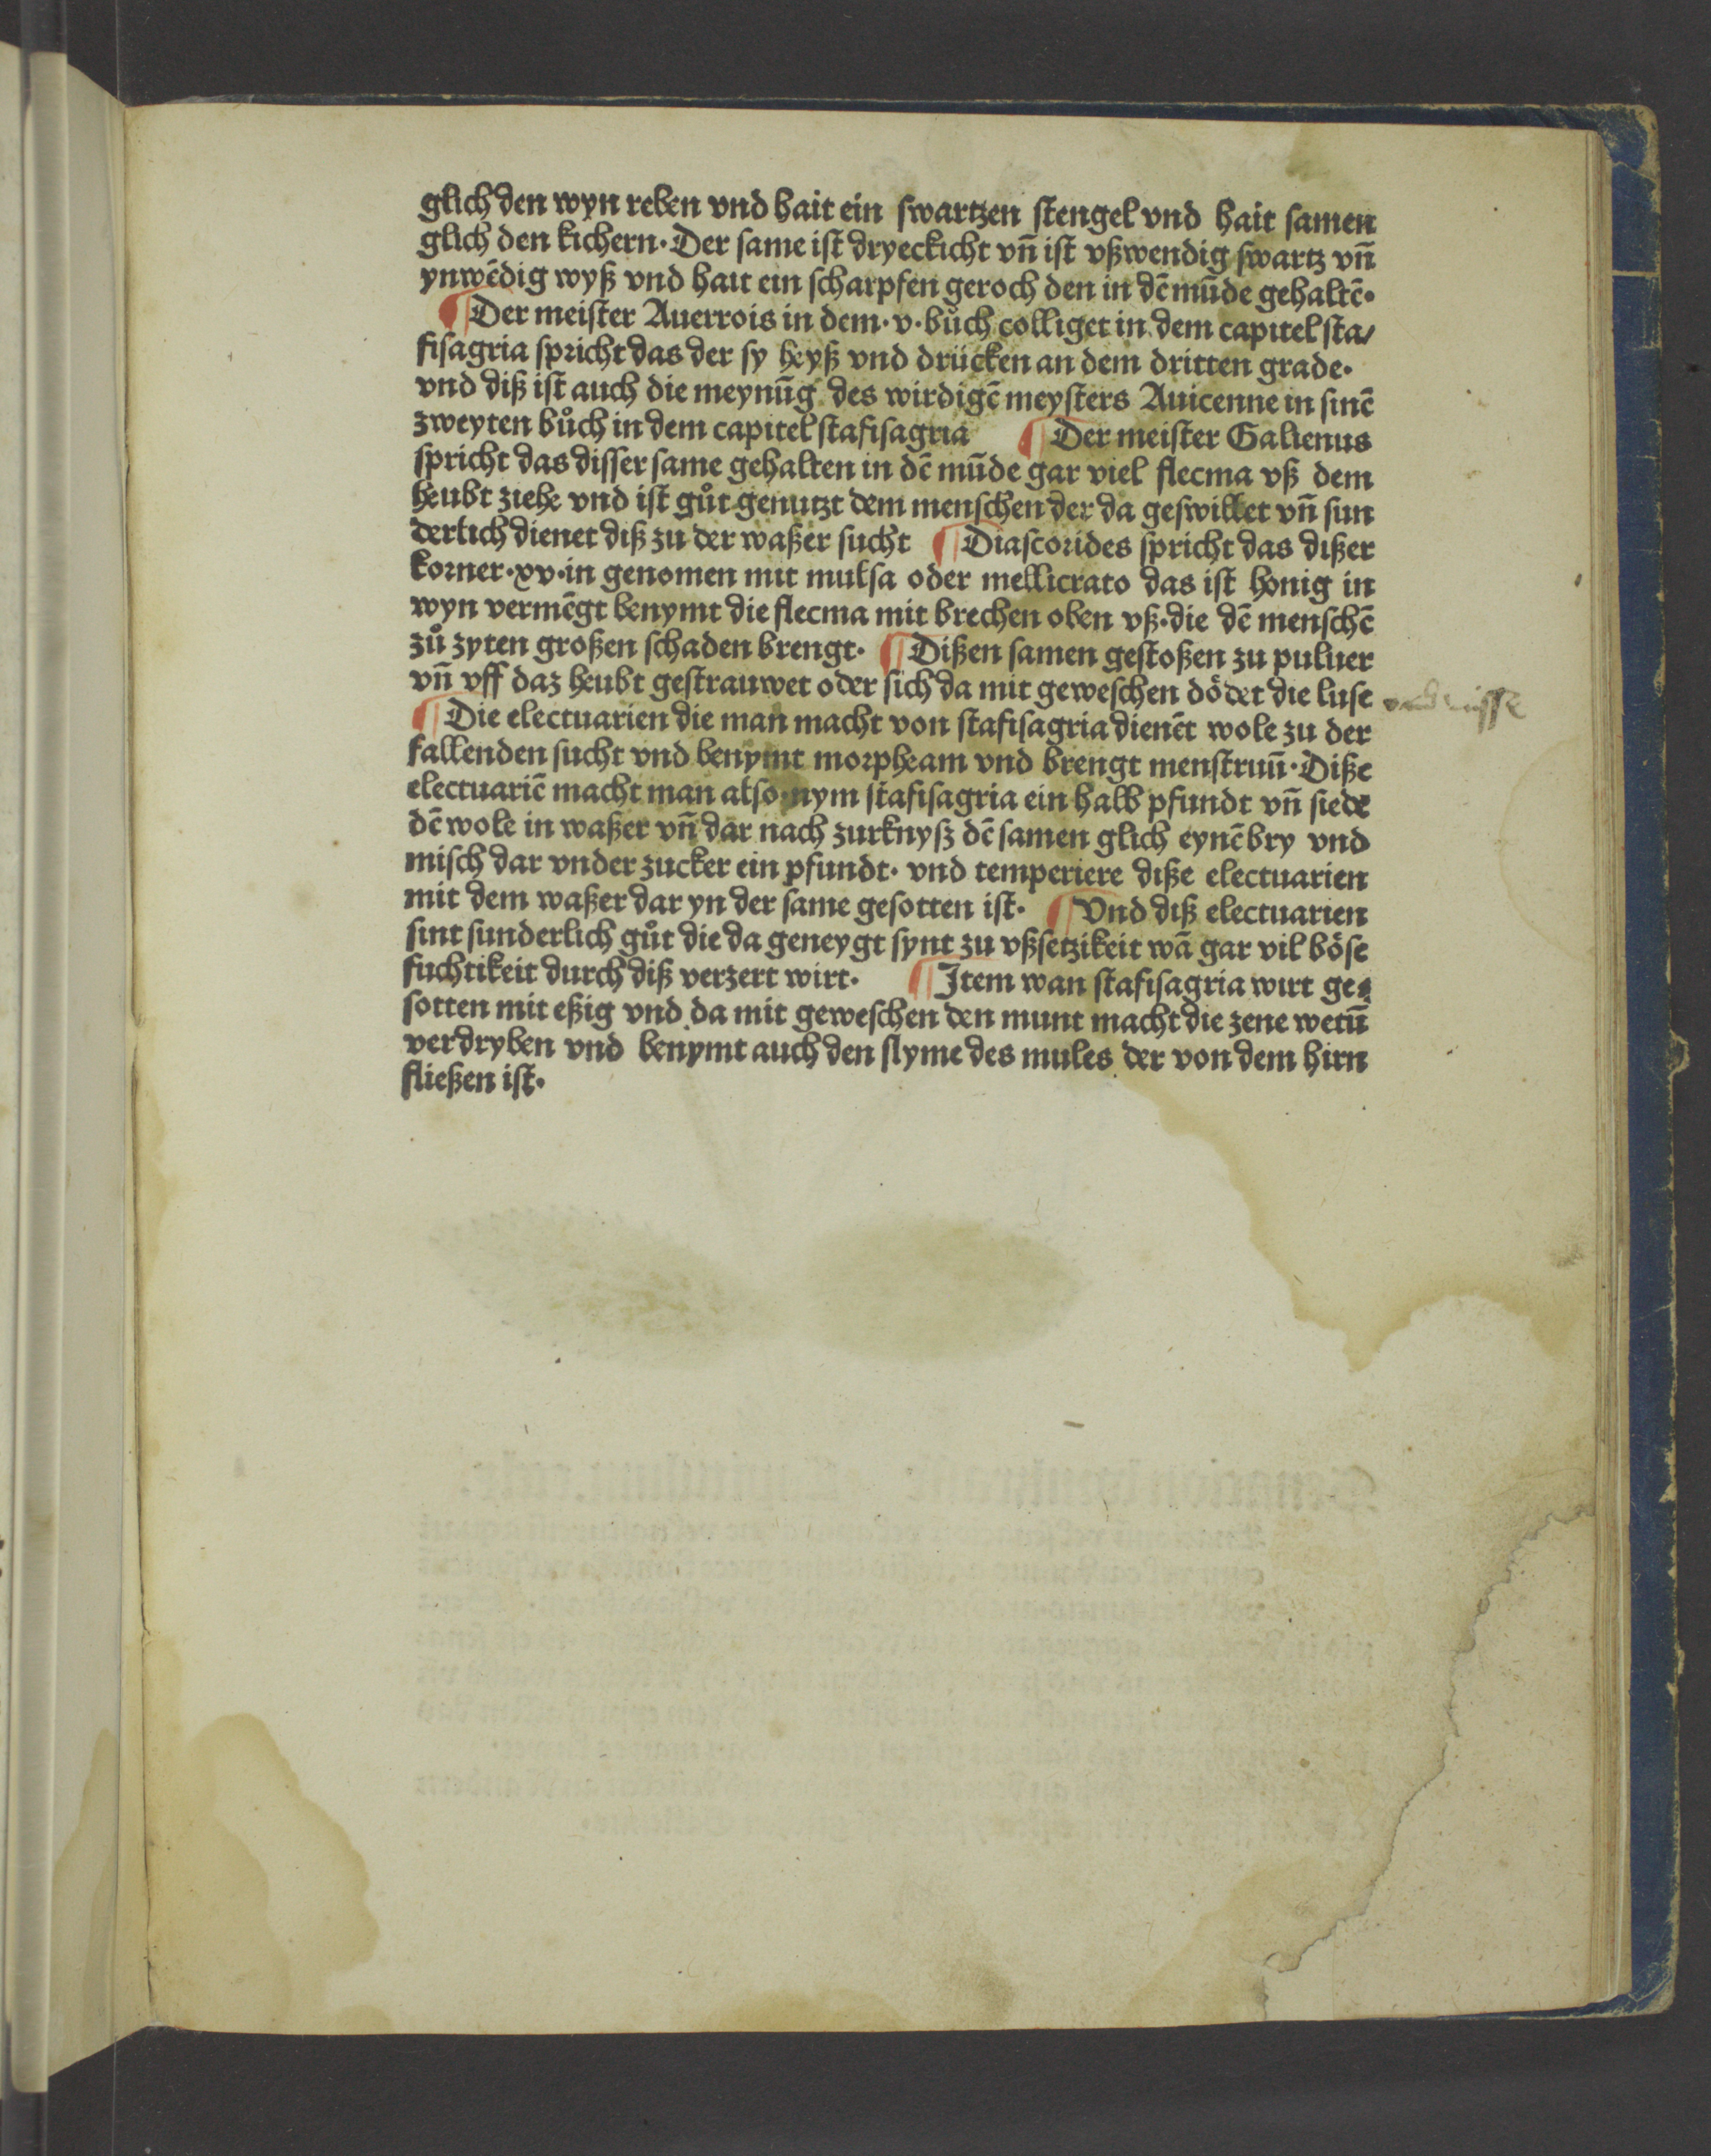 glich den wyn reben vnd hait ein swartzen stengel vnd hait samen
glich den kichern· Der same ist dryeckicht vn̄ ist vßwendig swartz vn̄
ynwēdig wyß vnd hait ein scharpfen geroch den in dē mūde gehaltē·
¶ Der meister Auerrois in dem· v· bůch colliget in dem capitel sta/
fisagria spricht das der sy heyß vnd drücken an dem dritten grade·
vnd diß ist auch die meynūg des wirdigē meysters Auicenne in sinē
zweyten bůch in dem capitel stafisagria ¶ Der meister Galienus
spricht das disser same gehalten in dē mūde gar viel flecma vß dem
heubt ziehe vnd ist gůt genutzt dem menschen der da geswillet vn̄ sun
derlich dienet diß zu der waßer sucht ¶ Diascorides spricht das dißer
korner· xv· in genomen mit mulsa oder mellicrato das ist honig in
wyn vermēgt benymt die flecma mit brechen oben vß· die dē menschē
zů zyten großen schaden brengt· ¶ Dißen samen gestoßen zu puluer
vn̄ vff daz heubt gestrauwet oder sich da mit geweschen dödet die luse
¶ Die electuarien die man macht von stafisagria dienēt wole zu der
fallenden sucht vnd benymt morpheam vnd brengt menstruū· Diße
electuariē macht man also· nym stafisagria ein halb pfundt vn̄ siede
dē wole in waßer vn̄ dar nach zurknysz dē samen glich eynē bry vnd
misch dar vnder zucker ein pfundt· vnd temperiere diße electuarien
mit dem waßer dar yn der same gesotten ist· ¶ Vnd diß electuarien
sint sunderlich gůt die da geneygt synt zu vßsetzikeit wā gar vil böse
fuchtikeit durch diß verzert wirt· ¶ Item wan stafisagria wirt ge⸗
sotten mit eßig vnd da mit geweschen den munt macht die zene wetū
verdryben vnd benymt auch den slyme des mules der von dem hirn
fließen ist·